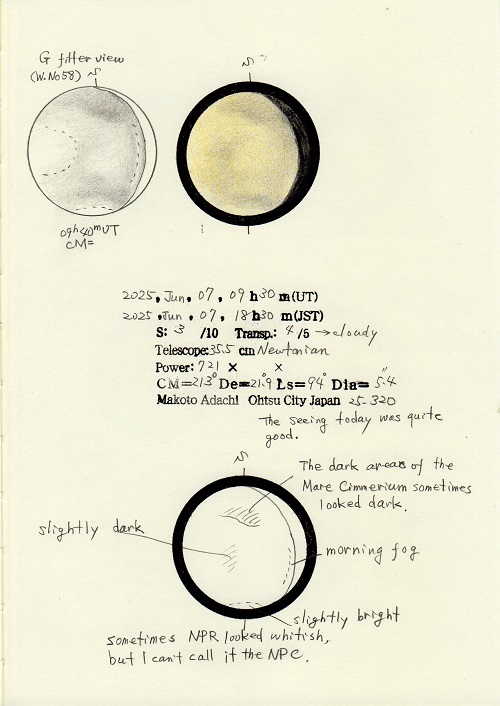 G filter view
(W.No58)
S
S
09h40mUT
CM=
2025, Jun, 07, 09 h30 m(UT)
2025, Jun, 07, 18h30 m(JST)
S: 3 /10 Transp.: 4 /5 → cloudy
Telescope: 35.5 cm Newtonian
Power: 721 × ×
CM=213° De=21.9 Ls=94° Dia= 5.4"
Makoto Adachi Ohtsu City Japan 25-320
The seeing today was quite
good.
S
The dark areas of the
Mare Cimmerium sometimes
looked dark.
slightly dark
morning fog
slightly bright
sometimes NPR looked whitish,
but I can't call it the NPC.